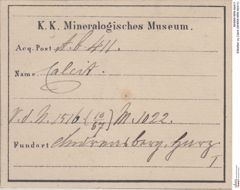 K. K. Mineralogisches Museum.
Acq. Post A.b. 411.
Name Calcit.
V. d. N. 1516 (12/67) M. 1022.
Fundort Andreasberg, Harz